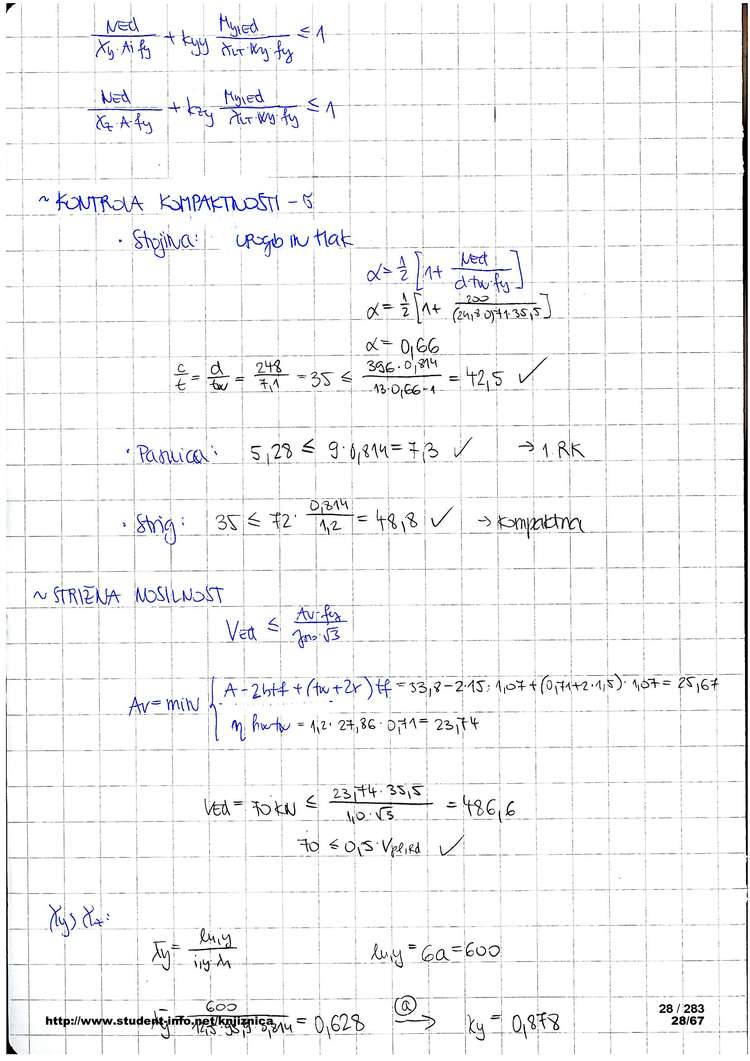 NEd / χy·A·fy + kyy My,Ed / χLT·Wy·fy ≤ 1
NEd / χz·A·fy + kzy My,Ed / χLT·Wy·fy ≤ 1
~ KONTROLA KOMPAKTNOSTI - σ
· Stojina: upogib in tlak
α = 1/2 [1 + NEd / d·tw·fy]
α = 1/2 [1 + 200 / (24,8·0,71·35,5)]
α = 0,66
c/t = d/tw = 248/7,1 = 35 ≤ 396·0,814 / 13·0,66-1 = 42,5 ✓
· Pasnica: 5,28 ≤ 9·0,814 = 7,3 ✓ → 1. RK
· Strig: 35 ≤ 72· 0,814/1,2 = 48,8 ✓ → kompaktna
~ STRIŽNA NOSILNOST
VEd ≤ Av·fy / γM0·√3
Av = min { A - 2btf + (tw + 2r) tf = 53,8 - 2·15·1,07 + (0,71 + 2·1,5)·1,07 = 25,67
η hw tw = 1,2·27,86·0,71 = 23,74
VEd = 70 kN ≤ 23,74·35,5 / 1,0·√3 = 486,6
70 ≤ 0,5·Vpl,Rd ✓
χy, χz:
λy = lu,y / iy·λ1 lu,y = 6a = 600
600 / 12,5·93,9·0,814 = 0,628 ⓐ → ky = 0,878
http://www.student-info.net/knjiznica
28 / 283
28/67